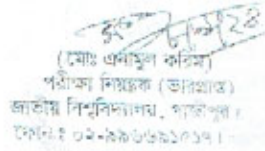 (মোঃ এনামুল করিম)
পরীক্ষা নিয়ন্ত্রক (ভারপ্রাপ্ত)
জাতীয় বিশ্ববিদ্যালয়, গাজীপুর।
ফোনঃ ০২-৯৯৬৬৯১৫১৭।